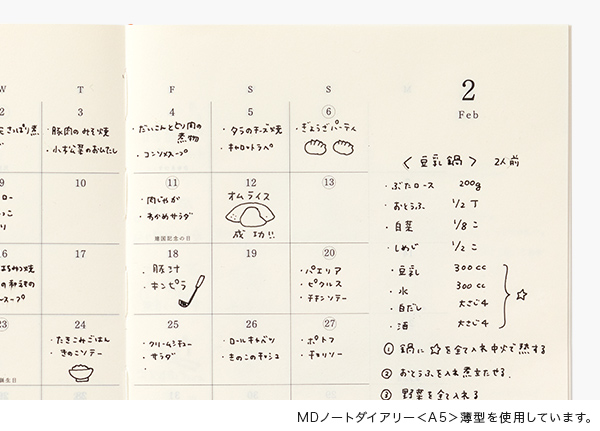 W
T
F
S
S
2
Feb
2
さっぱり煮
3
・豚肉のみそ焼
・小松菜のおひたし
4
・だいこんととり肉の
煮物
・コンソメスープ
5
・タラのチーズ焼
・キャロットラペ
6
・ぎょうざパーティ
9
10
11
・肉じゃが
・わかめサラダ
建国記念の日
12
オムライス
成功!!
13
16
17
18
・豚汁
・キンピラ
19
20
・パエリア
・ピクルス
・チキンソテー
23
誕生日
24
・たきこみごはん
・きのこソテー
25
・クリームシチュー
・サラダ
26
・ロールキャベツ
・きのこのキッシュ
27
・ポトフ
・チョリソー
〈豆乳鍋〉 2人前
・ぶたロース 200g
・おとうふ 1/2丁
・白菜 1/8こ
・しめじ 1/2こ
・豆乳 300cc
・水 300cc
・白だし 大さじ4
・酒 大さじ4
☆
① 鍋に☆を全て入れ中火で熱する
② おとうふを入れ煮立たせる.
③ 野菜を全て入れる
MDノートダイアリー＜A5＞薄型を使用しています。